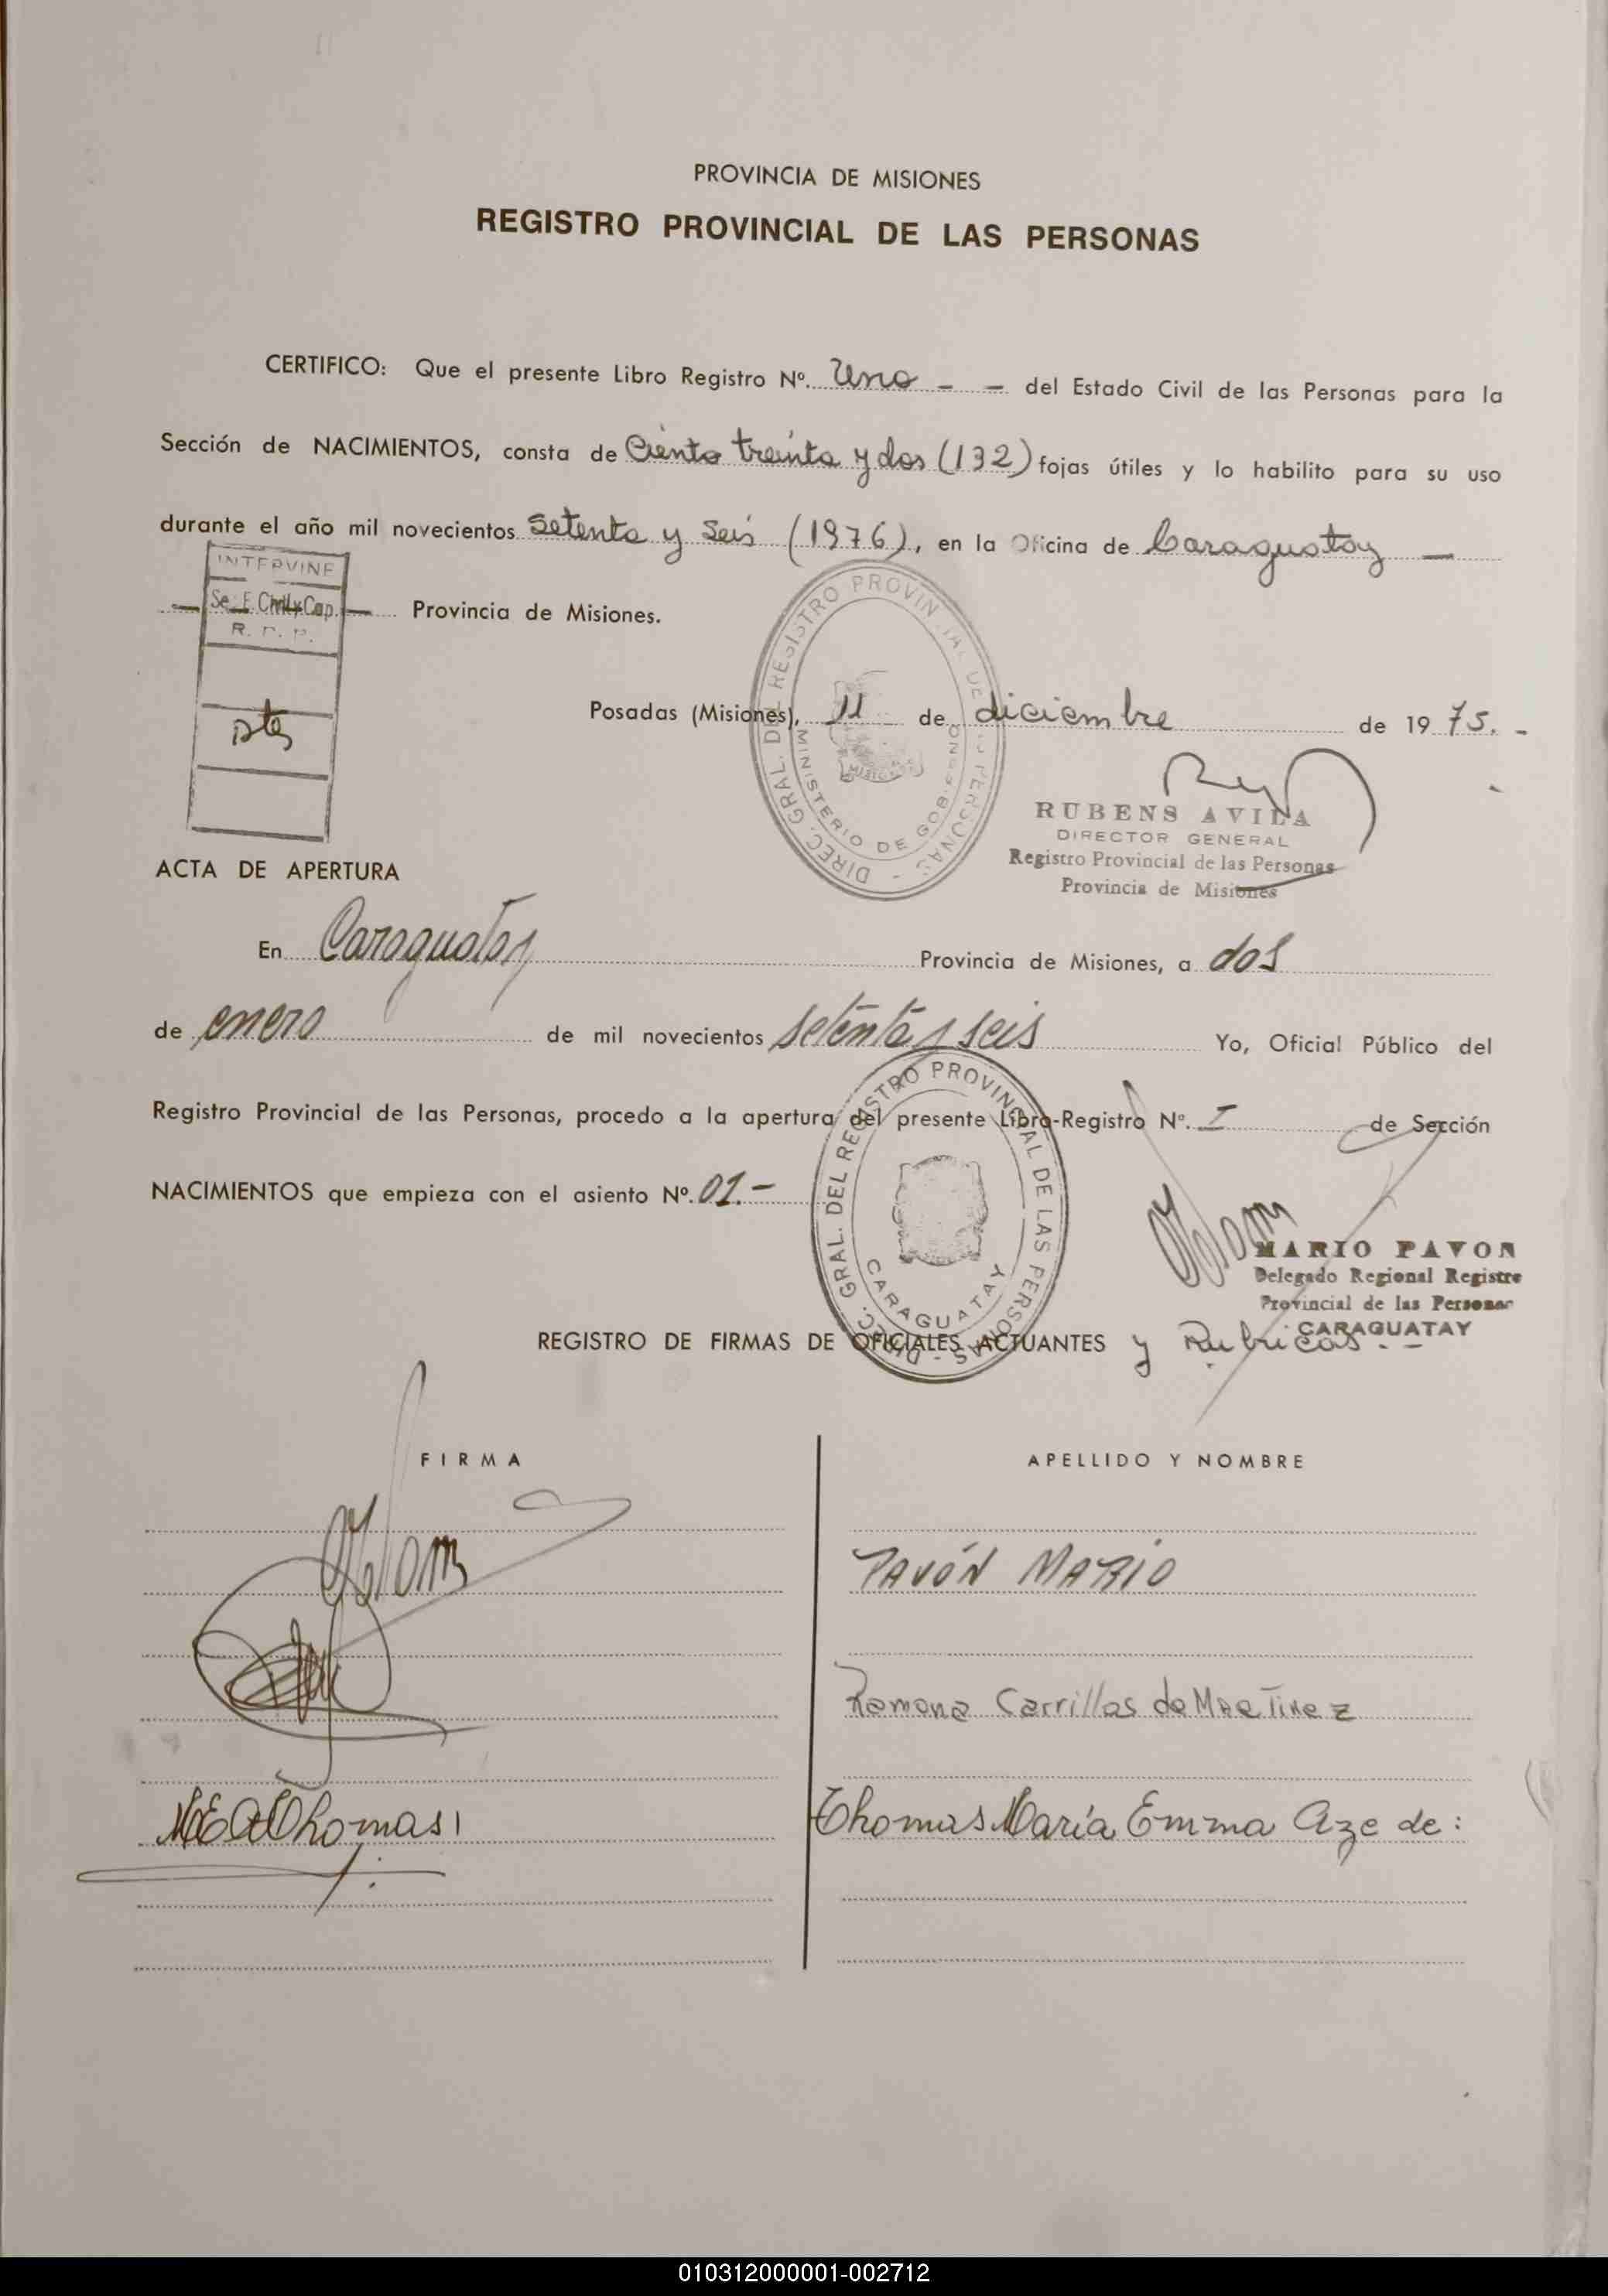 PROVINCIA DE MISIONES
REGISTRO PROVINCIAL DE LAS PERSONAS
CERTIFICO: Que el presente Libro Registro Nº. Uno - - del Estado Civil de las Personas para la
Sección de NACIMIENTOS, consta de Ciento treinta y dos (132) fojas útiles y lo habilito para su uso
durante el año mil novecientos setenta y seis (1976), en la Oficina de Caraguatay —
— Provincia de Misiones.
INTERVINE
Se. E. Civil y Cap.
R. P. P.
Posadas (Misiones), 11 de diciembre de 1975. -
DIREC. GRAL. DEL REGISTRO PROVINCIAL DE LAS PERSONAS -
MINISTERIO DE GOBIERNO
MISIONES
RUBENS AVILA
DIRECTOR GENERAL
Registro Provincial de las Personas
Provincia de Misiones
ACTA DE APERTURA
En Caraguatay Provincia de Misiones, a dos
de enero de mil novecientos setenta y seis Yo, Oficial Público del
Registro Provincial de las Personas, procedo a la apertura del presente Libro-Registro Nº. I de Sección
NACIMIENTOS que empieza con el asiento Nº. 01.-
DIREC. GRAL. DEL REGISTRO PROVINCIAL DE LAS PERSONAS -
CARAGUATAY
MARIO PAVON
Delegado Regional Registro
Provincial de las Personas
CARAGUATAY
REGISTRO DE FIRMAS DE OFICIALES ACTUANTES y Rubricas. -
FIRMA APELLIDO Y NOMBRE
PAVÓN MARIO
Ramona Carrillas de Martinez
MEAThomas Thomas María Emma Aze de:
010312000001-002712